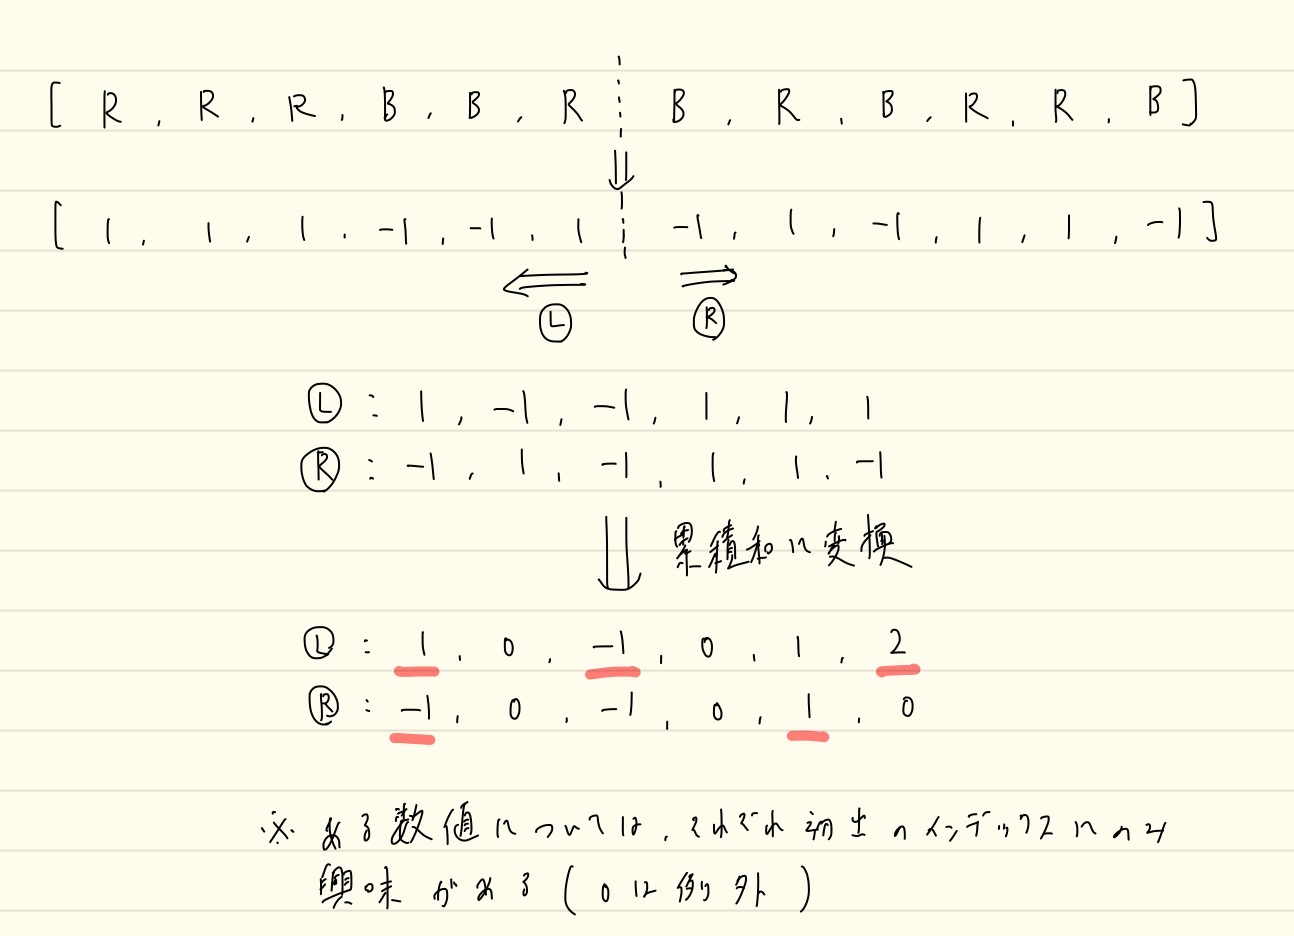 [ R , R , R , B , B , R B , R , B , R , R , B ]
[ 1 , 1 , 1 , -1 , -1 , 1 -1 , 1 , -1 , 1 , 1 , -1 ]
Ⓛ Ⓡ
Ⓛ : 1 , -1 , -1 , 1 , 1 , 1
Ⓡ : -1 , 1 , -1 , 1 , 1 , -1
累積和に変換
Ⓛ : 1 , 0 , -1 , 0 , 1 , 2
Ⓡ : -1 , 0 , -1 , 0 , 1 , 0
※ ある数値については、それぞれ初出のインデックスにのみ
興味がある ( 0は例外 )